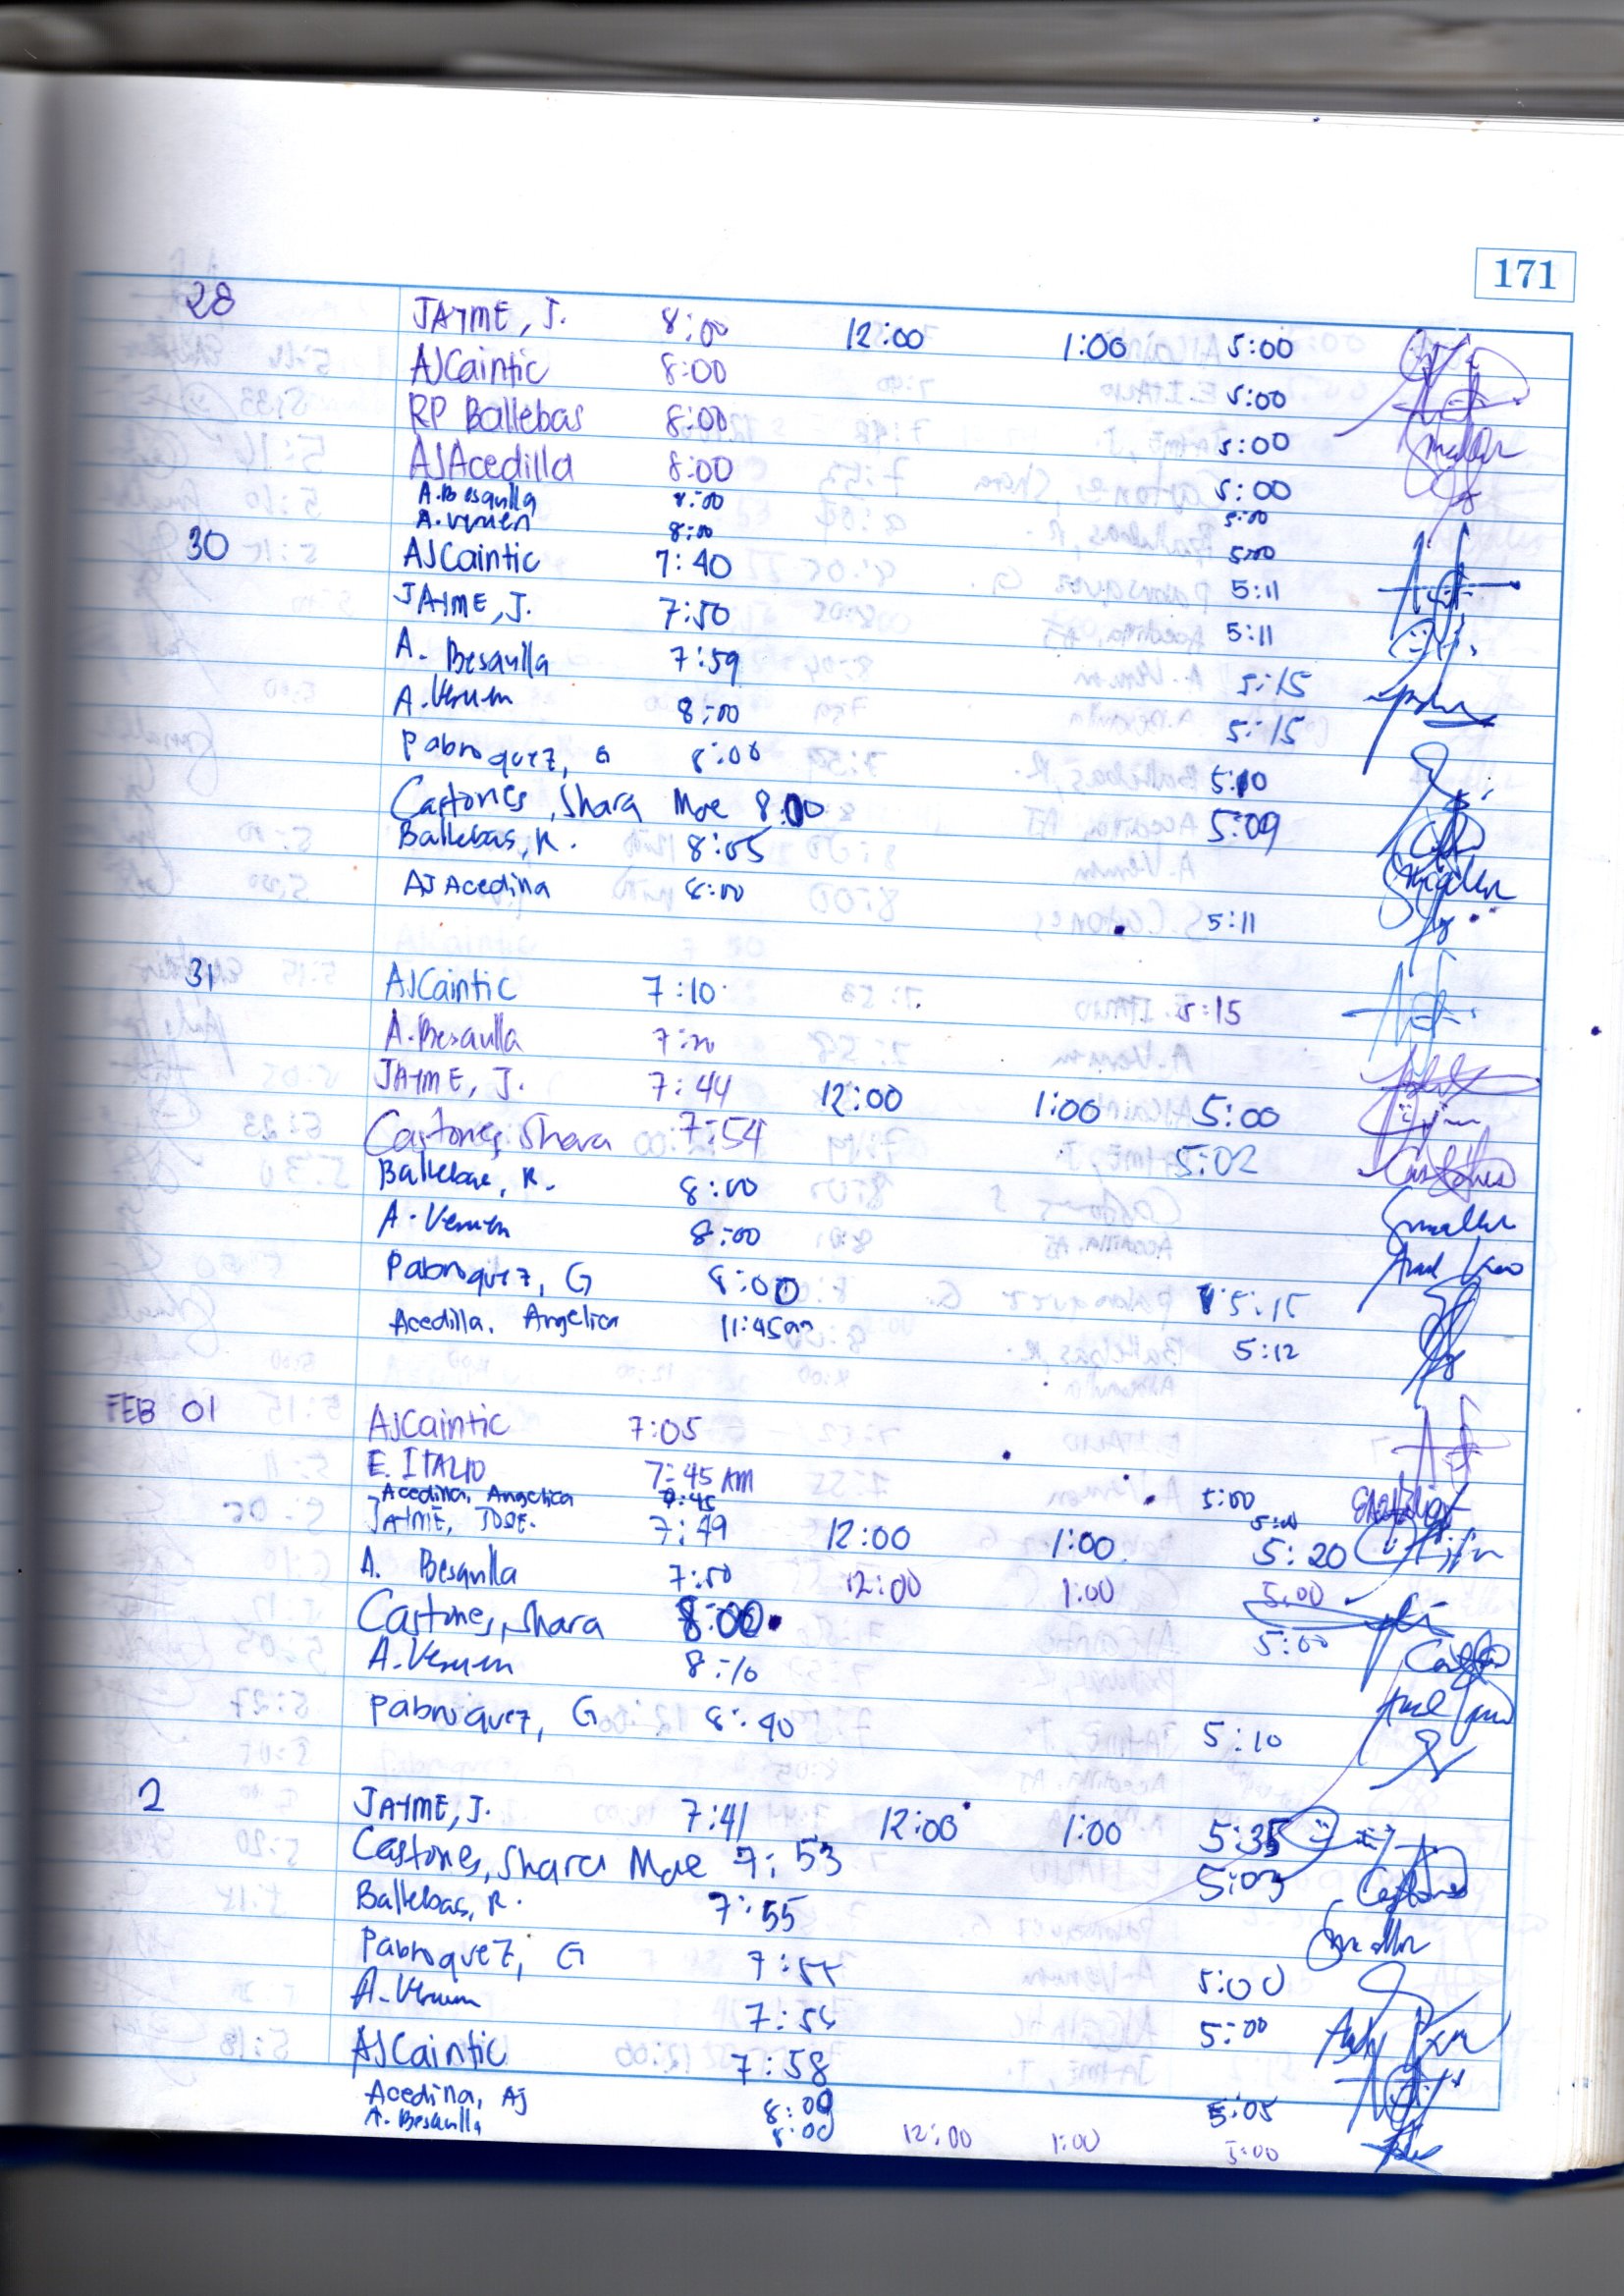 171
28 JAYME, J. 8:00 12:00 1:00 5:00
AJCaintic 8:00 5:00
RP Ballebas 8:00 5:00
AJAcedilla 8:00 5:00
A. Besaulla 8:00 5:00
A. Venien 8:00 5:00
30 AJCaintic 7:40 5:11
JAYME, J. 7:50 5:11
A. Besaulla 7:59 5:15
A. 8:00 5:15
Pabroquez, G 8:00 5:10
Castones, Shara Mae 8:00 5:09
Ballebas, R. 8:05
AJ Acedilla 8:00 5:11
31 AJCaintic 7:10 5:15
A. Besaulla
JAYME, J. 7:44 12:00 1:00 5:00
Castones, Shara 7:54 5:02
Ballebas, R. 8:00
A. 8:00
Pabroquez, G 8:00 5:15
Acedilla, Angelica 11:45am 5:12
FEB 01 AJCaintic 7:05
E. ITALIO 7:45 AM 5:00
Acedilla, Angelica 7:45 5:00
JAYME, JOSE. 7:49 12:00 1:00 5:20
A. Besaulla 7:50 12:00 1:00 5:00
Castones, Shara 8:00 5:00
A. 8:10
Pabroquez, G 8:40 5:10
2 JAYME, J. 7:41 12:00 1:00 5:35
Castones, Shara Mae 7:53 5:03
Ballebas, R. 7:55
Pabroquez, G 7:55 5:00
A. 5:00
AJCaintic 7:58
Acedilla, AJ 8:00 5:05
A. Besaulla 8:00 12:00 1:00 5:00